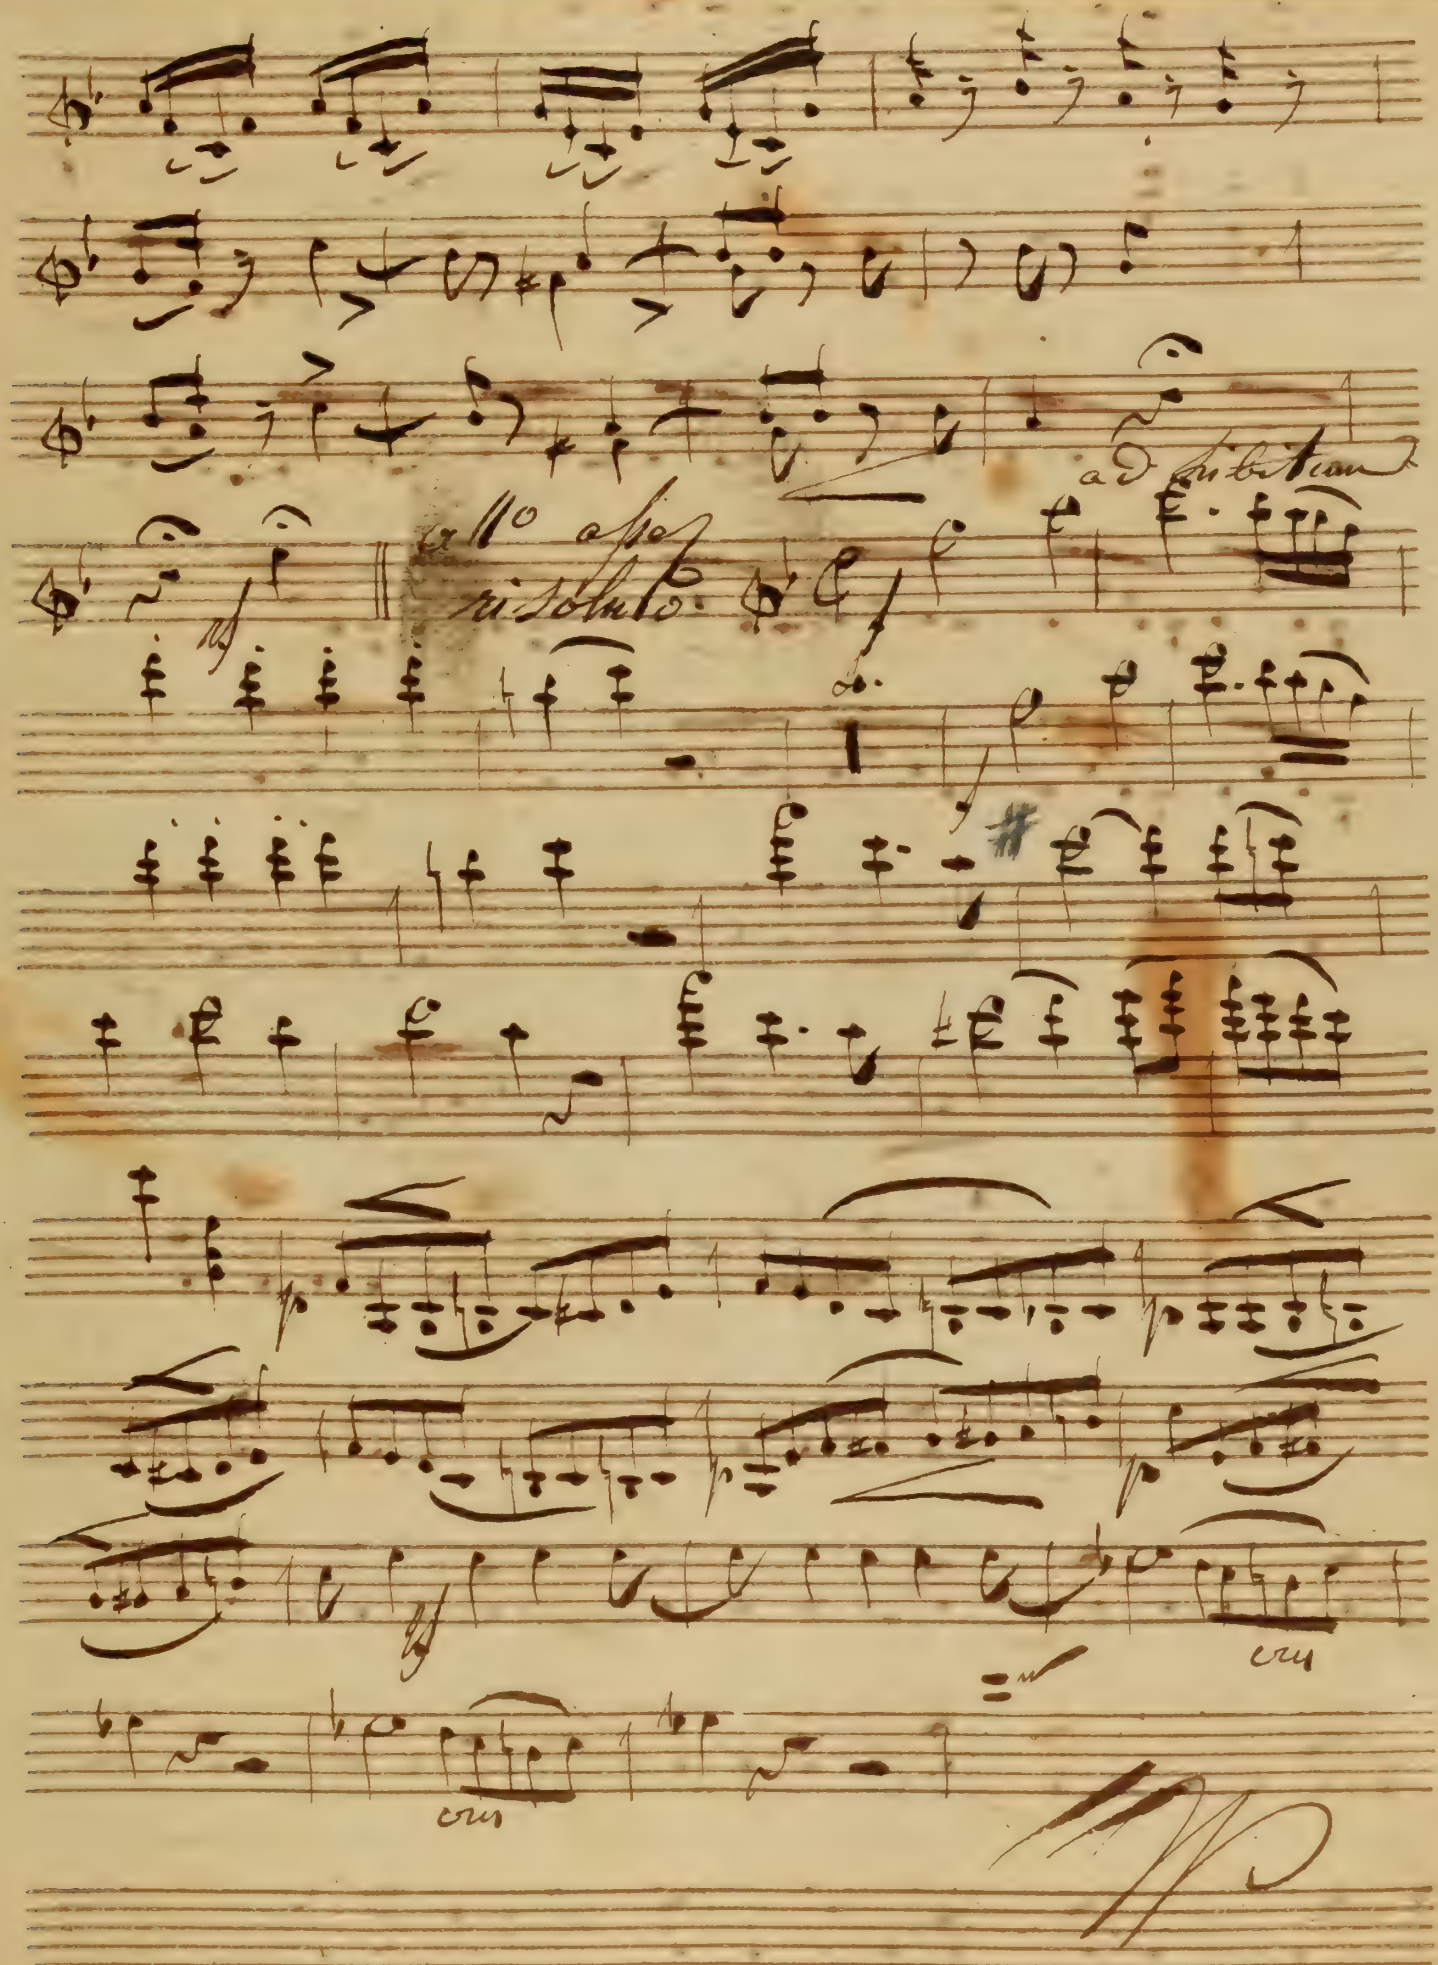 ad libitum
rf
allo assai
risoluto.
f
f
p
p
p
p
rf
cres
cres